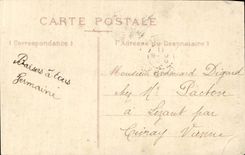 CARTE POSTALE
Correspondance
Adresse du Destinataire
Baisers à tous
Germaine
Monsieur Edmond Digard
chez Mr Pacton
à Lizant par
Civray Vienne